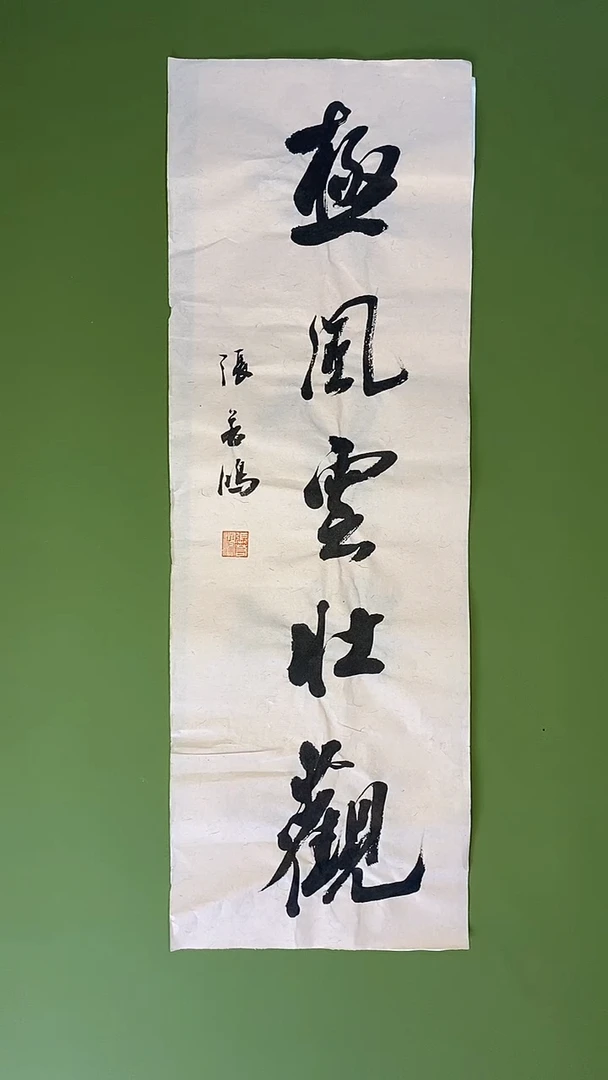 極風雲壯觀
張若鴻